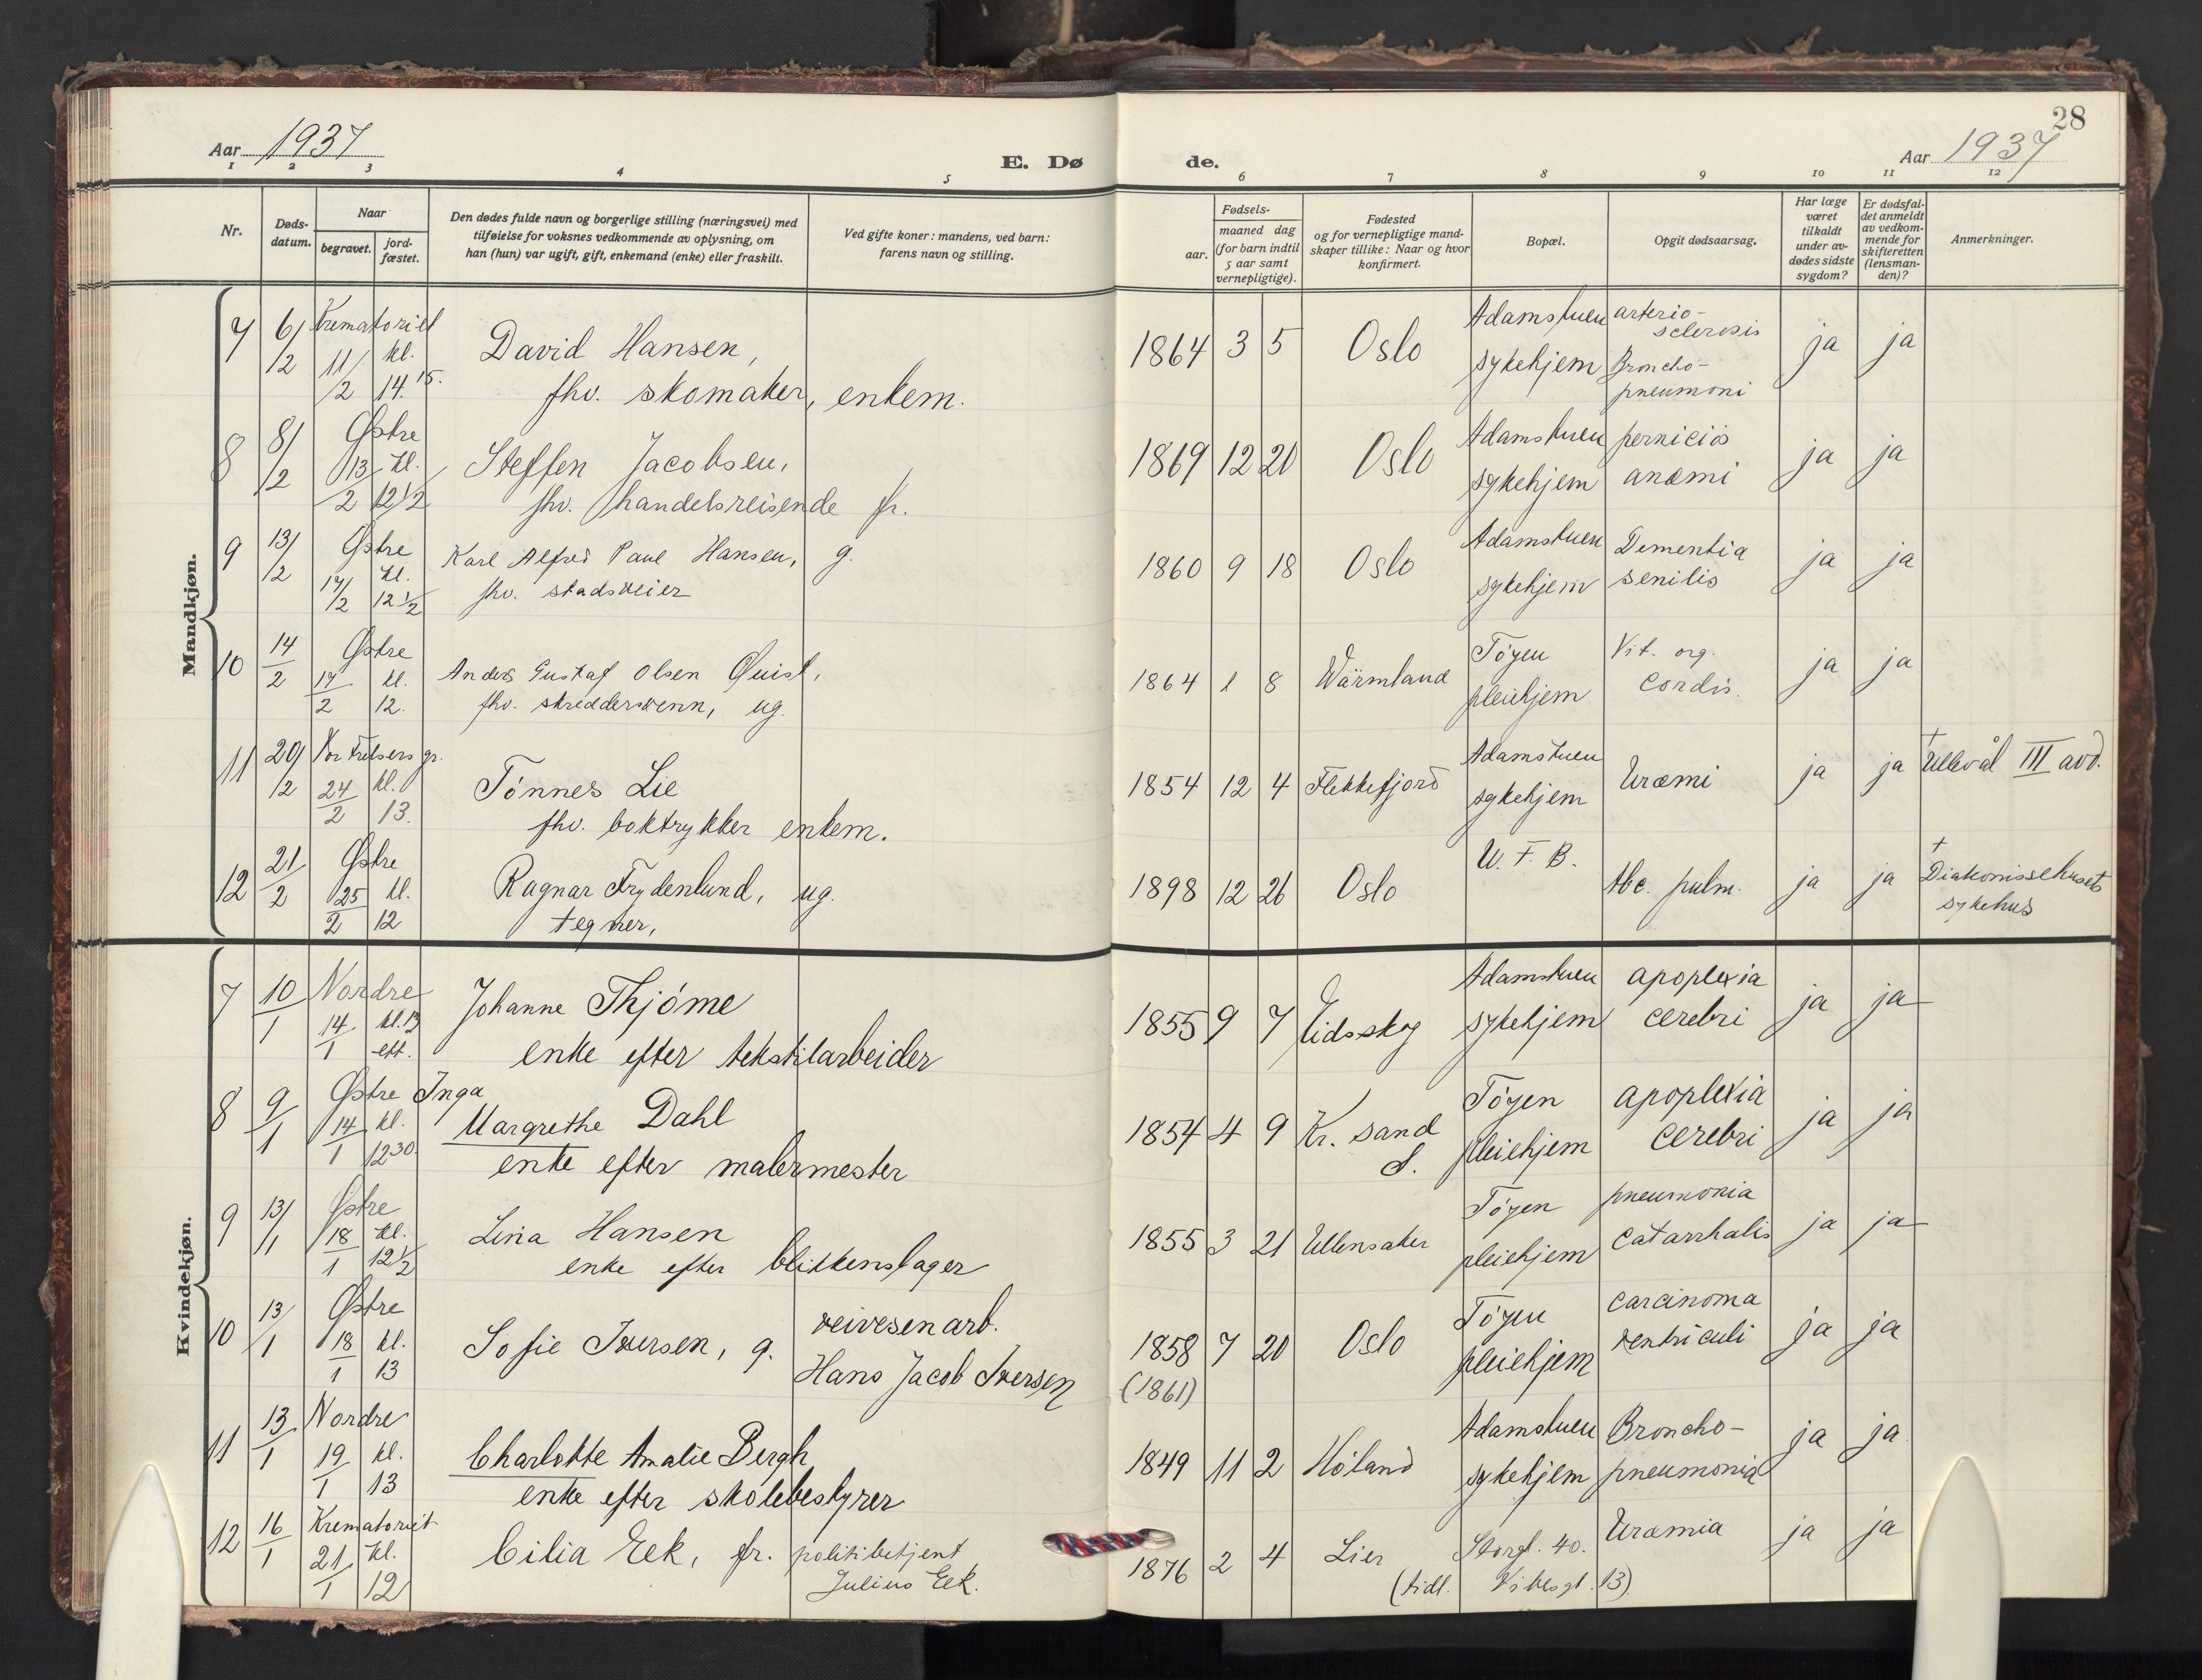 28
Aar 1937
E. Dø de.
Aar 1937
1 2 3 4 5 6 7 8 9 10 11 12
Nr.
Døds-
datum.
Naar
begravet.
jord-
fæstet.
Den dødes fulde navn og borgerlige stilling (næringsvei) med
tilføielse for voksnes vedkommende av oplysning, om
han (hun) var ugift, gift, enkemand (enke) eller fraskilt.
Ved gifte koner: mandens, ved barn:
farens navn og stilling.
Fødsels-
aar.
maaned dag
(for barn indtil
5 aar samt
vernepligtige).
Fødested
og for vernepligtige mand-
skaper tillike: Naar og hvor
konfirmert.
Bopæl.
Opgit dødsaarsag.
Har læge
været
tilkaldt
under av-
dødes sidste
sygdom?
Er dødsfal-
det anmeldt
av vedkom-
mende for
skifteretten
(lensman-
den)?
Anmerkninger.
Mandkjøn.
7 6/2 Krematoriet 11/2 kl. 14.15.
David Hansen,
fhv. skomaker, enkem.
1864 3 5 Oslo
Adamstuen
sykehjem
arterio-
sclerosis
Broncho-
pneumoni
ja ja
8 8/2 Østre 13/2 kl. 12 1/2
Steffen Jacobsen,
fhv. handelsreisende fr.
1869 12 20 Oslo
Adamstuen
sykehjem
perniciøs
anæmi
ja ja
9 13/2 Østre 17/2 kl. 12 1/2
Karl Alfred Paul Hansen, g.
fhv. stadsveier
1860 9 18 Oslo
Adamstuen
sykehjem
Dementia
senilis
ja ja
10 14/2 Østre 17/2 kl. 12.
Anders Gustaf Olsen Quist,
fhv. skreddersvenn, ug.
1864 1 8 Wärmland
Tøyen
pleiehjem
Vit. org.
cordis.
ja ja
11 20/2 Vor Frelsers gr. 24/2 kl. 13.
Tønnes Lie
fhv. boktrykker enkem.
1854 12 4 Flekkefjord
Adamstuen
sykehjem
Uræmi
ja ja
† Ullevål III avd.
12 21/2 Østre 25/2 kl. 12
Ragnar Frydenlund, ug.
tegner,
1898 12 26 Oslo
U. F. B.
tbc. pulm.
ja ja
†
Diakonissehusets
sykehus
Kvindekjøn.
7 10/1 Nordre 14/1 kl. 13 eft.
Johanne Thjøme
enke efter tekstilarbeider
1855 9 7 Eidsskog
Adamstuen
sykehjem
apoplexia
cerebri
ja ja
8 9/1 Østre 14/1 kl. 12 30
Inga
Margrethe Dahl
enke efter malermester
1854 4 9 Kr. sand
S.
Tøyen
pleiehjem
apoplexia
cerebri
ja ja
9 13/1 Østre 18/1 kl. 12 1/2
Lina Hansen
enke efter blikkenslager
1855 3 21 Ullensaker
Tøyen
pleiehjem
pneumonia
catarrhalis
ja ja
10 13/1 Østre 18/1 kl. 13
Sofie Iversen, g.
veivesenarb.
Hans Jacob Iversen
1858 7 20 Oslo
(1861)
Tøyen
pleiehjem
carcinoma
ventriculi
ja ja
11 13/1 Nordre 19/1 kl. 13
Charlotte Amalie Bergh
enke efter skolebestyrer
1849 11 2 Høland
Adamstuen
sykehjem
Broncho-
pneumonia
ja ja
12 16/1 Krematoriet 21/1 kl. 12
Cilia Eek, fr.
politibetjent
Julius Eek.
1876 2 4 Lier
Storgt. 40.
(tidl. Vibesgt. 13)
Uræmia
ja ja